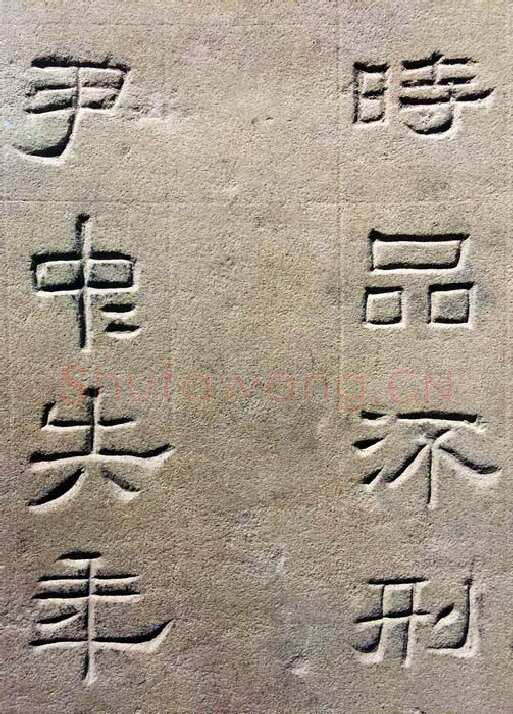 時品㳅刑
尹中〻失年
Shufawang.CN